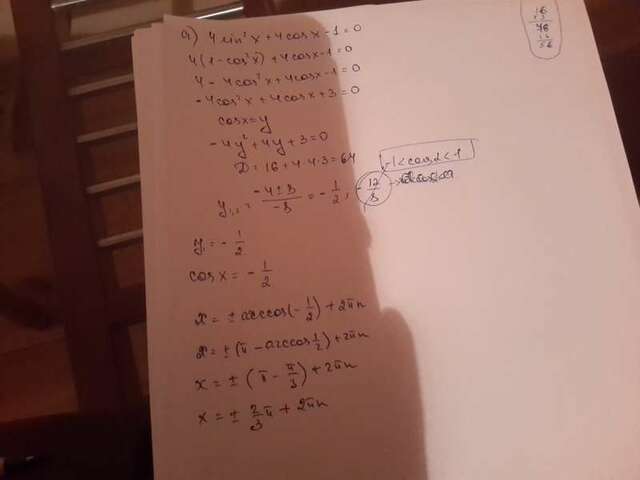 a) 4sin²x+4cosx-1=0
4(1-cos²x)+4cosx-1=0
4-4cos²x+4cosx-1=0
-4cos²x+4cosx+3=0
cosx=y
-4y²+4y+3=0
D=16+4·4·3=64
y₁,₂ = (-4±8)/(-8) = -1/2; -12/8
-1<cosα<1
y₁=-1/2
cosx=-1/2
x=±arccos(-1/2)+2πn
x=±(π-arccos1/2)+2πn
x=±(π-π/3)+2πn
x=±2/3π+2πn